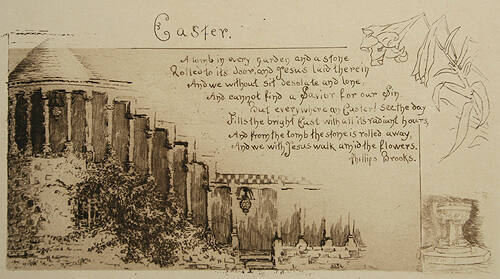 Easter.
A tomb in every garden and a stone
Rolled to its door, and Jesus laid therein
And we without sit desolate and lone,
And cannot find a Savior for our Sin.
But everywhere an Easter! See the day
Fills the bright East with all its radiant hours,
And from the tomb the stone is rolled away,
And we with Jesus walk amid the flowers.
Phillips Brooks.